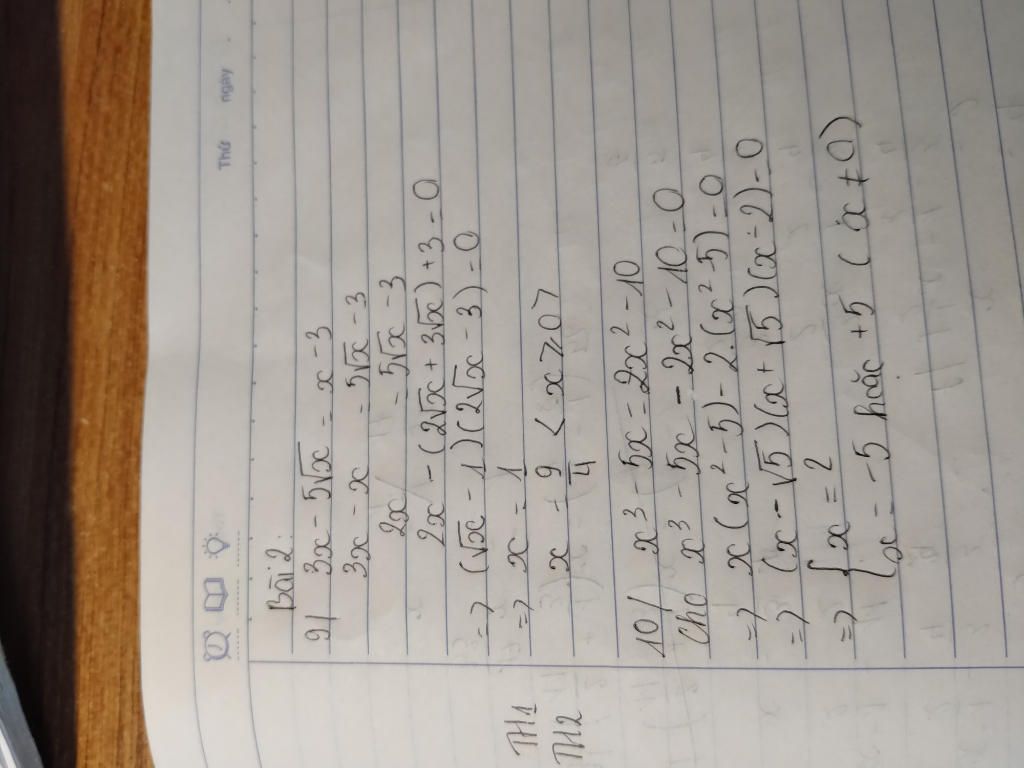 Thứ ngày
Bài 2:
9/ 3x - 5√x = x - 3
3x - x = 5√x - 3
2x = 5√x - 3
2x - (2√x + 3√x) + 3 = 0
=> (√x - 1)(2√x - 3) = 0
TH1 => x = 1
TH2 x = 9/4 < x ⩾ 0 >
10/ x³ - 5x = 2x² - 10
Cho x³ - 5x - 2x² - 10 = 0
=> x(x² - 5) - 2.(x² - 5) = 0
=> (x - √5)(x + √5)(x - 2) = 0
=> { x = 2
x = -5 hoặc +5 (x ≠ 0)